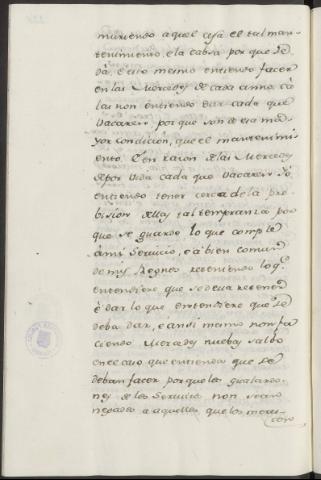 muriendo aquel cesa el tal man-
tenimiento, e la cabsa por que se
dà. E eso mesmo entiendo facer
en las Mercedes de cada anno, cà
las non entiendo dar cada que
Vacaren por que son de esa me
yor condición, que el mantenimi
ento. E en razon de las Mercedes
de por Vida cada que Vacaren Yo
entiendo tener cerca de la pro
bision dellas tal temperanza por
que se guarde lo que cumple
à mi Servicio, e à bien comun
de mis Regnos reteniendo lo q.e
entendiere que se deva retener
è dar lo que entendiere que se
deba dar, e ansi mismo non fa
ciendo Mercedes nuebas salbo
en el caso que entienda que se
deban facer, porque los gualardo-
nes de los Servicios non sean
negados a aquellos que los mere-